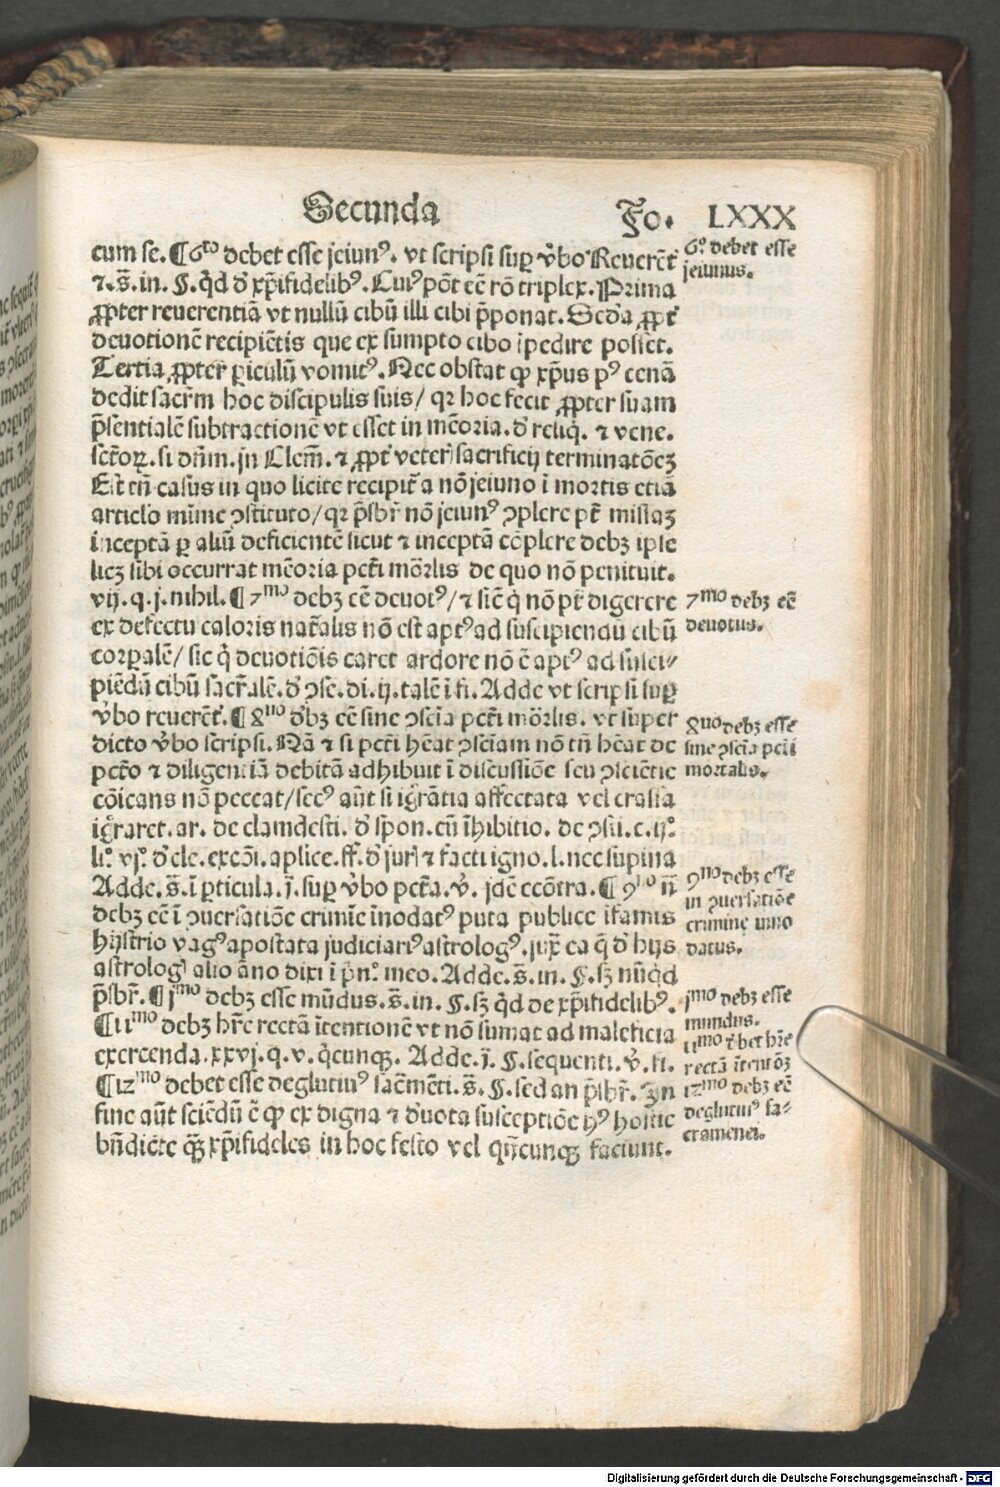 Secunda Fo. LXXX
cum se. ¶ 6to debet esse jeiunꝰ. vt scripsi suꝑ v̓bo Reuerēt̓
⁊. s̄. in. §. q̇d d̓ xp̄ifidelibꝰ. Cuiꝰ pōt eē rō triplex. Prima
ꝓpter reuerentiā vt nullū cibū illi cibi p̄ponat. Scd̓a ꝓpt̓
deuotionē recipiētis que ex sumpto cibo īpedire posset.
Tertia ꝓpter ꝑiculū vomitꝰ. Nec obstat ꝙ xp̄us pꝰ cenā
dedit sacr̄m hoc discipulis suis/ qꝛ hoc fecit ꝓpter suam
p̄sentialē subtractionē vt esset in mēoria. d̓ reliq̇. ⁊ vene.
sct̄oꝝ. si dn̄m. in Clem̄. ⁊ ꝓpt̓ veter̓ sacrificij terminatōeꝫ
Est tn̄ casus in quo licite recipit̓ a nō jeiuno ī mortis etiā
articl̓o mīme ↄstituto/ qꝛ p̄sbr̓ nō jeiunꝰ ↄplere pt̄ missaꝫ
inceptā ꝑ aliū deficientē sicut ⁊ inceptā cōplere debꝫ ipse
licꝫ sibi occurrat mēoria pct̄i mōrlis de quo nō penituit.
vij. q. j. nihil. ¶ 7mo debꝫ eē deuotꝰ/ ⁊ sic̄ q̇ nō pt̄ digerere
ex defectu caloris nat̄alis nō est aptꝰ ad suscipiendū cibū
corꝑalē/ sic q̇ deuotiōis caret ardore nō ē aptꝰ ad susci⸗
piēdū cibū sacr̄alē. d̓ ↄse. di. ij. talē ī fi. Adde vt scripsi suꝑ
v̓bo reuerēt̓. ¶ 8uo d̓bꝫ eē sine ↄscīa pct̄i mōrlis. vt super
dicto v̓bo scripsi. Nā ⁊ si pct̄i hēat ↄsciam nō tn̄ hēat de
pct̄o ⁊ diligenciā debitā adhibuit ī discussiōe seu ↄsciētie
cōicans nō peccat/ secꝰ aūt si igr̄antia affectata vel crassa
igr̄aret. ar. de clamdesti. d̓ spon. cū īhibitio. de ↄsti. c. ijº.
li. vjº. d̓ cle. excōi. aplice. ff. d̓ jur̓ ⁊ facti igno. l. nec supina
Adde. s̄. ī ꝑticula. j. suꝑ v̓bo pct̄a. v̓. idē ecōtra. ¶ 9no n̄
debꝫ eē ī ↄuersatiōe crimīe īnodatꝰ puta publice īfamis
hijstrio vagꝰ apostata judiciariꝰ astrologꝰ. jux̄ ea q̄ d̓ hijs
astrolog̓ alio āno dixi ī p̄nº meo. Adde. s̄. in. §. sꝫ nūq̇d
p̄sbr̓. ¶ jmo debꝫ esse mūdus. s̄. in. §. sꝫ q̇d de xp̄ifidelibꝰ.
¶ 11mo debꝫ hr̄e rectā ītentionē vt nō sumat ad maleficia
exercenda. xxvj. q. v. q̇cunqꝫ. Adde. j̄. §. sequenti. v̓. fi.
¶ 12mo debet esse deglutiuꝰ sacmēti. s̄. §. sed an p̄sbr̓. In
fine aūt sciēdū ē ꝙ ex digna ⁊ d̓uota susceptiōe hꝰ hostie
bn̄dicte quā xp̄ifideles in hoc festo vel q̇ncunqꝫ faciunt.
6º debet esse
jeiunus.
7mo debꝫ eē
deuotus.
8uo debꝫ esse
sine ↄscīa pct̄i
mortalis.
9no debꝫ esse
in ↄuersatiōe
crimine inno
datus.
jmo debꝫ esse
mundus.
11mo d̓bet hr̄e
rectā ītentōꝫ
12mo debꝫ eē
deglutiuꝰ sa⸗
cramenti.
Digitalisierung gefördert durch die Deutsche Forschungsgemeinschaft - DFG